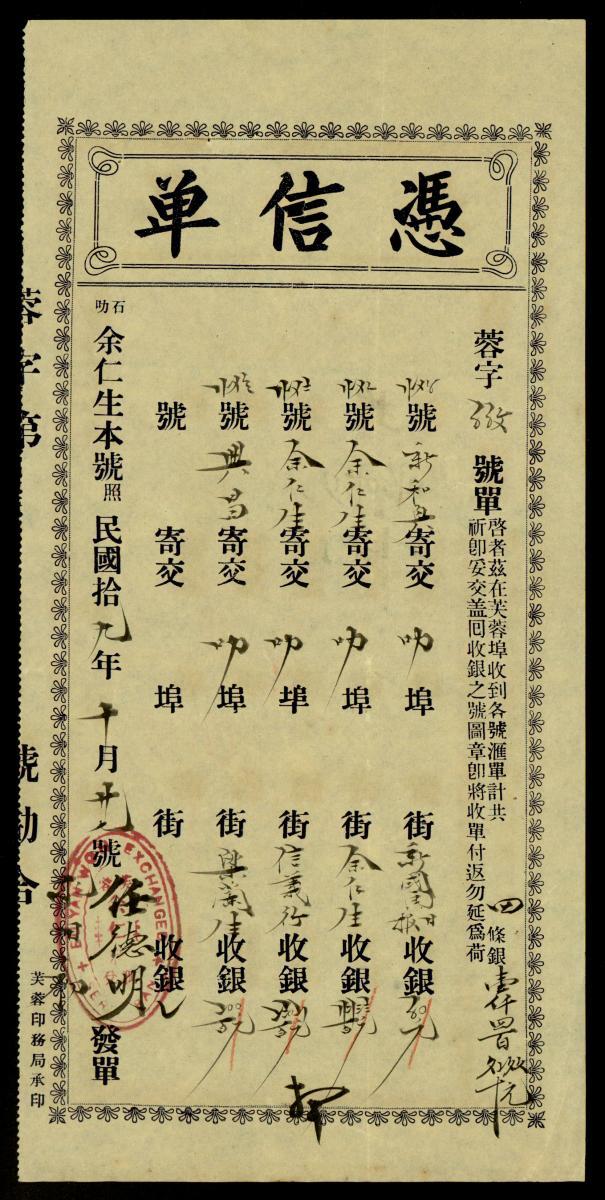 憑信单
蓉字 號單 啓者茲在芙蓉埠收到各號滙單計共 四 條銀壹仟四百
祈卽妥交盖囘收銀之號圖章卽將收單付返勿延爲荷
號新和興寄交 叻 埠 街新國民日報收銀
號余仁生寄交 叻 埠 街余仁生收銀
號余仁生寄交 叻 埠 街信義行收銀
號興昌寄交 叻 埠 街 蘭生收銀
號 寄交 埠 街 收銀
石叻 余仁生本號照 民國拾九年十月廿九號任德明發單
EXCHANGE
蓉字第 號勘合
芙蓉印務局承印